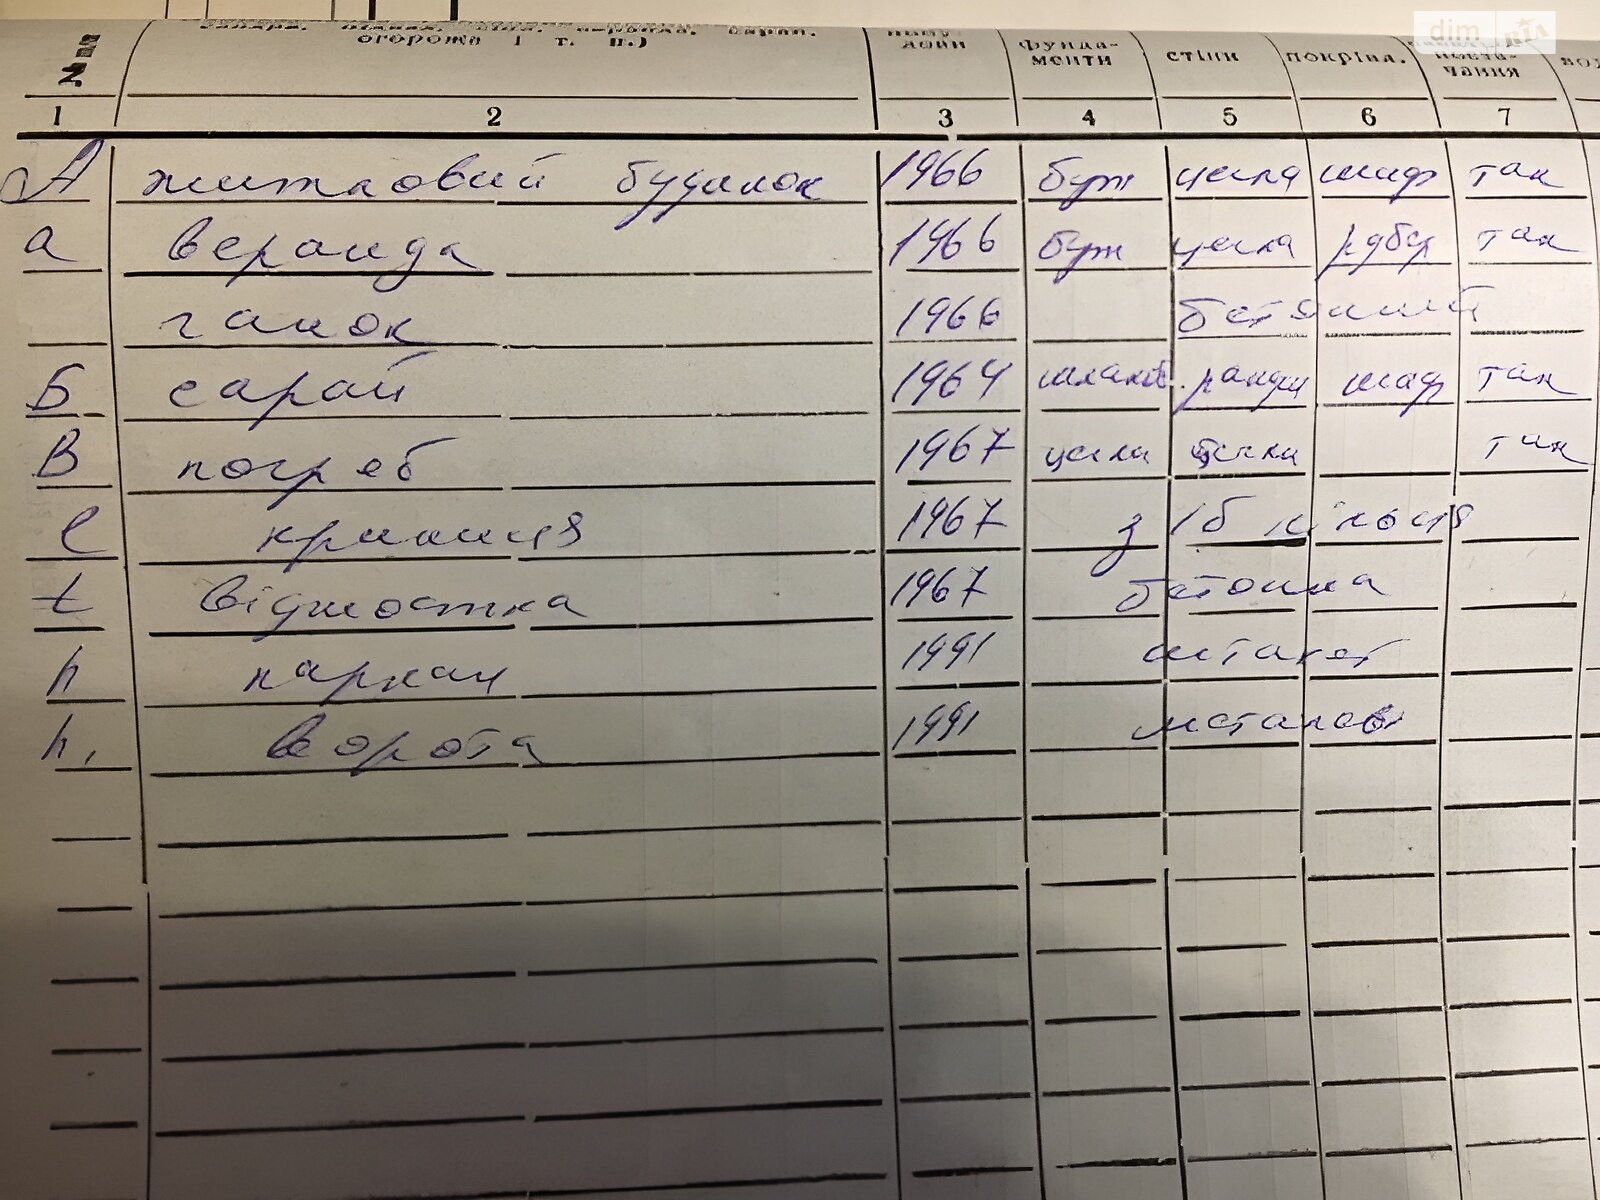 dim RIA
№ пп
огорожа і т. п.) дови фунда- менти стіни покрівл. чання
1 2 3 4 5 6 7
А житловий будинок 1966 бут цегла шиф так
а веранда 1966 бут цегла рубер так
ганок 1966 бетонний
Б сарай 1964 так
В погреб 1967 цегла цегла так
криниця 1967 з кільця
відмостка 1967 бетонна
паркан 1991 штахет
ворота 1991 металеві